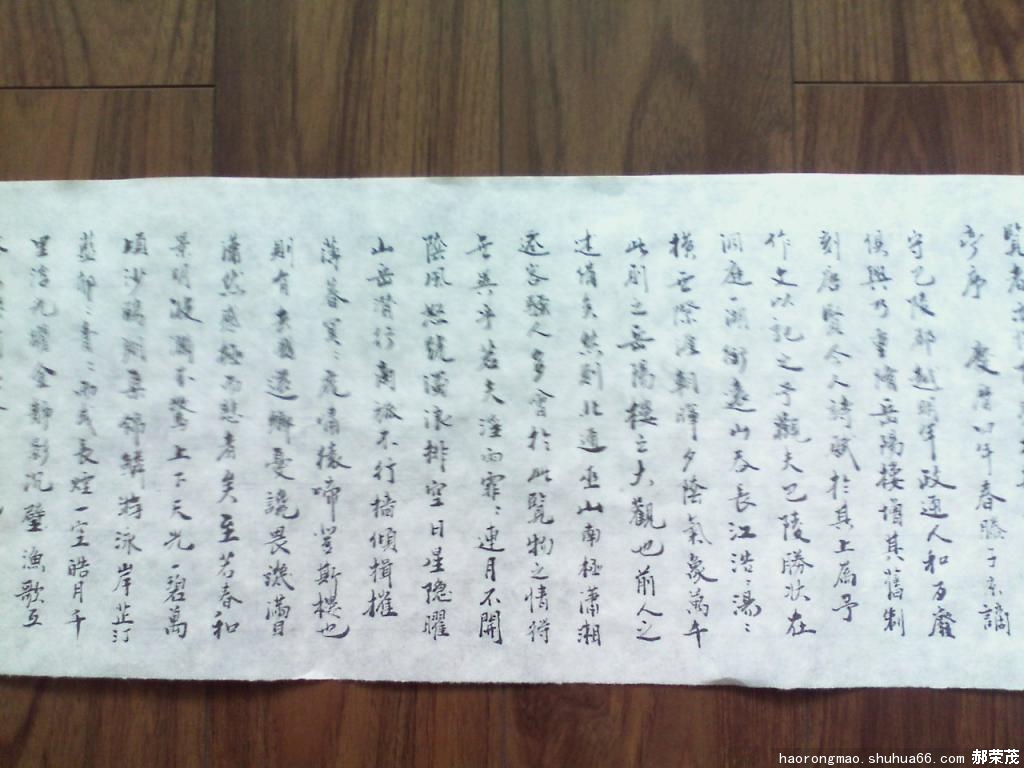 覽者
亭序 慶曆四年春滕子京謫
守巴陵郡越明年政通人和百廢
俱興乃重脩岳陽樓增其舊制
刻唐賢今人詩賦於其上屬予
作文以記之予觀夫巴陵勝狀在
洞庭一湖銜遠山吞長江浩〻湯〻
橫無際涯朝暉夕陰氣象萬千
此則之岳陽樓之大觀也前人之
述備矣然則北通巫山南極瀟湘
遷客騷人多會於此覽物之情得
無異乎若夫淫雨霏〻連月不開
陰風怒號濁浪排空日星隱曜
山岳潛行商旅不行檣傾楫摧
薄暮冥〻虎嘯猿啼登斯樓也
則有去國還鄉憂讒畏譏滿目
蕭然感極而悲者矣至若春和
景明波瀾不驚上下天光一碧萬
頃沙鷗翔集錦鱗游泳岸芷汀
蘭郁〻青〻而或長煙一空皓月千
里浮光躍金靜影沉璧漁歌互
haorongmao.shuhua66.com 郝荣茂